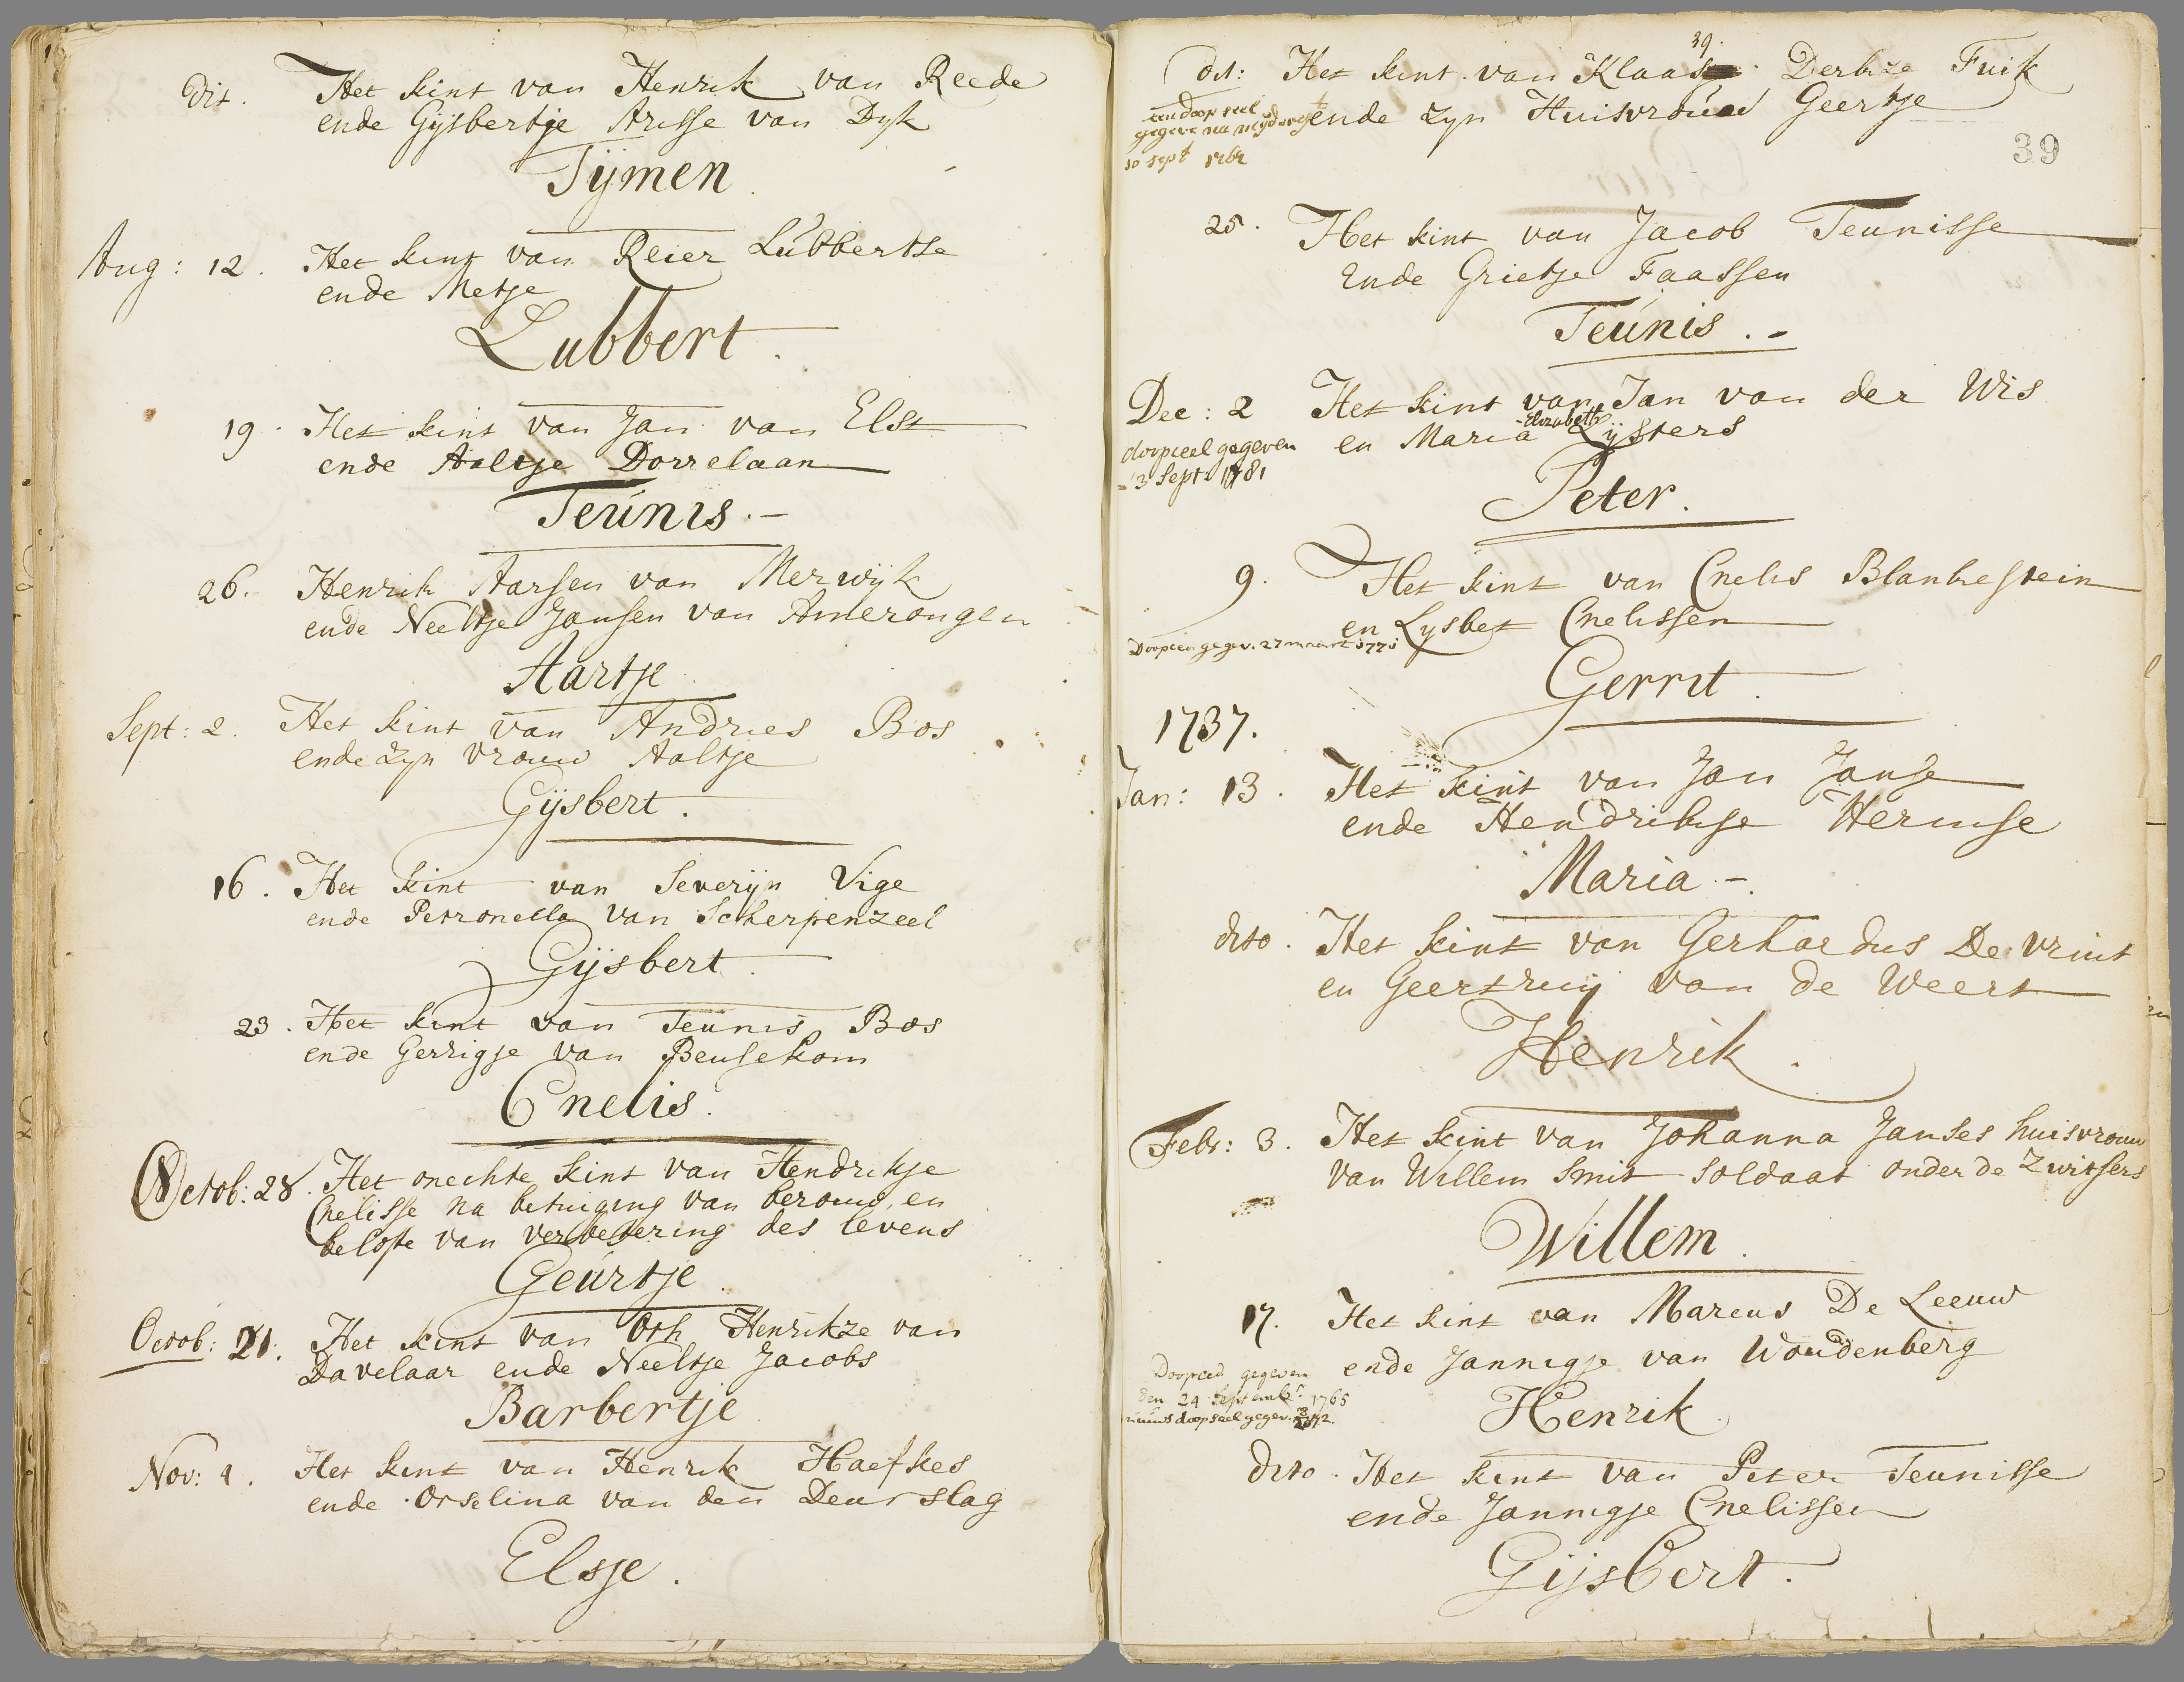 dit. Het kint van Henrik van Reede
ende Gijsbertje Arisse van Dyk
Tijmen
Aug: 12. Het kint van Reier Lubbertse
ende Metje
Lubbert.
19. Het kint van Jan van Elst
ende Aaltje Dorrelaan
Teunis.-
26. Henrik Aarsen van Merwijk
ende Neeltje Jansen van Amerongen
Aartje
Sept: 2. Het kint van Andries Bos
ende zyn vrouw Aaltje
Gijsbert.
16. Het kint van Severijn Vige
ende Petronella van Scherpenzeel
Gijsbert.
23. Het kint van Teunis Bos
ende Gerrigje van Beusekom
Cnelis.
Octob: 28. Het onechte kint van Hendrikje
Cnelisse na betuiging van berouw en
belofte van verbetering des levens
Geurtje.
Octob: 21. Het kint van Oth Henrikze van
Davelaar ende Neeltje Jacobs
Barbertje
Nov: 1. Het kint van Henrik Haefkes
ende Orselina van den Deurslag
Elsje.
39.
dit: Het kint van Klaas Derkze Fuik
ende zyn Huisvrouw Geertje
een doopseel
gegeve na
10 sept 1762
39
25. Het kint van Jacob Teunisse
Ende Grietje Faassen
Teunis.-
Dec: 2 Het kint van Jan van der Wis
en Maria Elizabeth Lijsters
doopceel gegeven
3 Sept: 1781
Peter.
9. Het kint van Cnelis Blankestein
en Lysbet Cnelissen
Doopceel gegev. 27 maart 1771
Gerrit.
1737.
Jan: 13. Het kint van Jan Janse
ende Hendrikje Hermse
Maria-.
dito. Het kint van Gerhardus De Vrint
en Geertruij van de Weert
Henrik.
Febr: 3. Het kint van Johanna Janses huisvrouw
van Willem Smit soldaat onder de Zwitsers
Willem.
17. Het kint van Marcus De Leeuw
ende Jannigje van Woudenberg
Doopceel gegeven
den 24 Septembr 1765
doopseel gegev.
Henrik.
dito. Het kint van Peter Teunisse
ende Jannigje Cnelissen
Gijsbert.